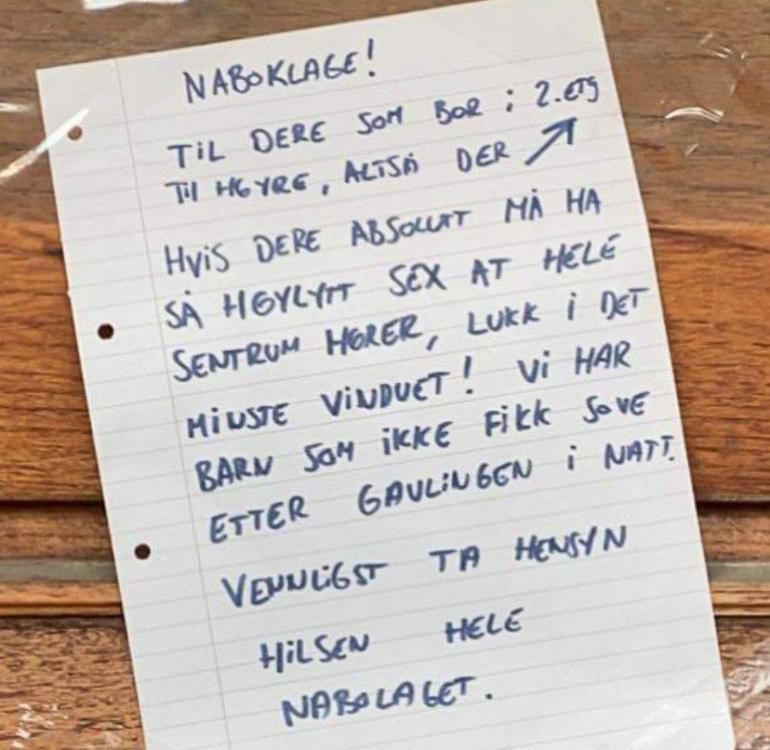 NABOKLAGE!
TIL DERE SOM BOR i 2.ETG
Til HØYRE, ALTSÅ DER
HVIS DERE ABSOLUTT MÅ HA
SÅ HØYLYTT SEX AT HELE
SENTRUM HØRER, LUKK i DET
MINSTE VINDUET! Vi HAR
BARN SOM iKKE FIKK SOVE
ETTER GAULINGEN i NATT.
VENNLIGST TA HENSYN
HILSEN HELE
NABOLAGET.